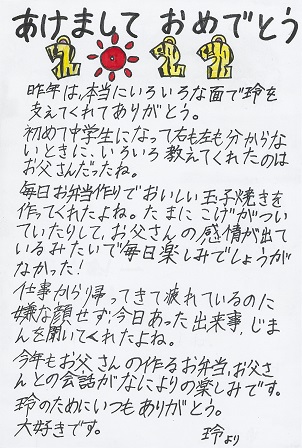 あけまして おめでとう
2022
昨年は、本当にいろいろな面で玲を
支えてくれてありがとう。
初めて中学生になって右も左も分からな
いときに、いろいろ教えてくれたのは
お父さんだったね。
毎日お弁当作りでおいしい玉子焼きを
作ってくれたよね。たまにこげがつい
ていたりして、お父さんの感情が出て
いるみたいで毎日楽しみでしょうが
なかった!
仕事から帰ってきて疲れているのに
嫌な顔せず今日あった出来事、じま
んを聞いてくれたよね。
今年もお父さんの作るお弁当、お父さ
んとの会話がなによりの楽しみです。
玲のためにいつもありがとう。
大好きです。 玲より